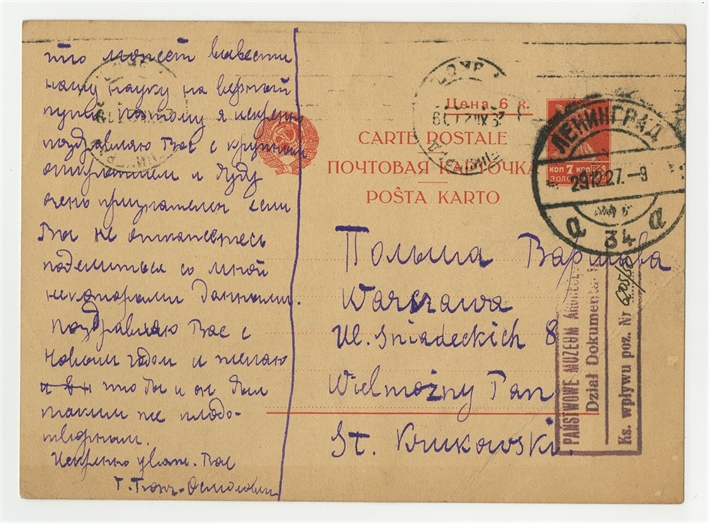 что может вывести
нашу науку на верный
путь. Поэтому я искренно
поздравляю Вас с крупным
открытием и буду
очень признателен если
Вы не откажетесь
поделиться со мной
некоторыми данными.
Поздравляю Вас с
Новым годом и желаю
чтобы и он был
таким же плодо-
творным.
Искренно уваж. Вас
Г. Бонч-Осмоловский
Цена 6 к.
CARTE POSTALE
ПОЧТОВАЯ КАРТОЧКА
POŜTA KARTO
КОП 7 КОП
ЗОЛОТОМ
ЛЕНИНГРАД
29.12.27.-9
а 34 а
Польша Варшава
Warszawa
Ul. Śniadeckich 8
Wielmożny Pan
St. Krukowski.
PAŃSTWOWE MUZEUM
Dział Dokumentacji
Ks. wpływu poz. Nr